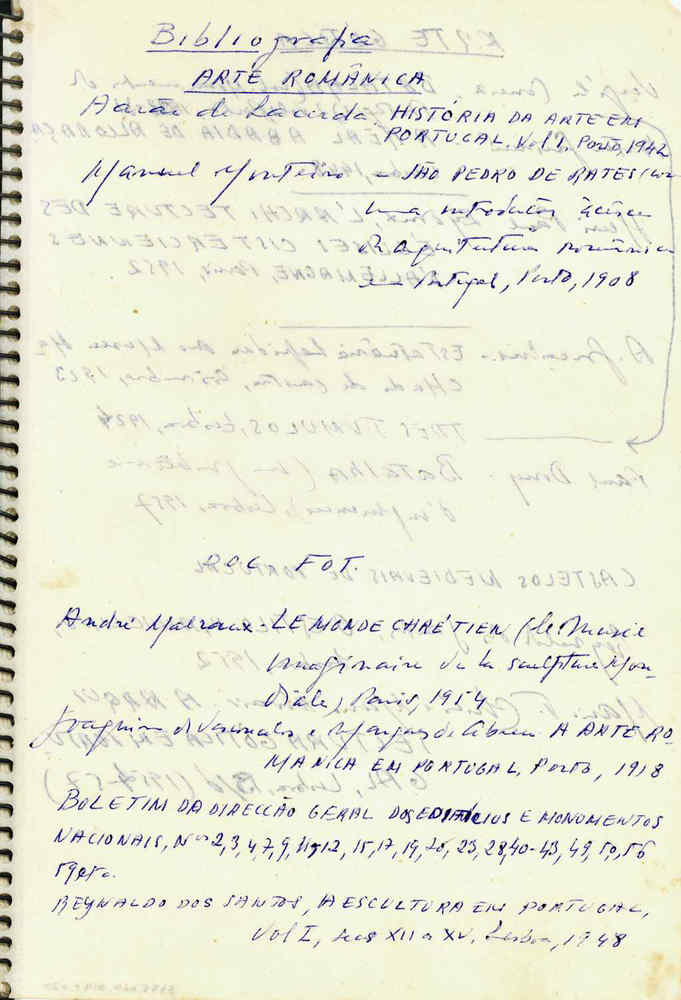 Bibliografia
ARTE ROMÂNICA
Aarão de Lacerda, HISTÓRIA DA ARTE EM
PORTUGAL, Vol I, Porto, 1942
Manuel Monteiro - SÃO PEDRO DE RATES (com
uma introdução àcêrca
da arquitectura românica
em Portugal, Porto, 1908
DOC. FOT.
André Malraux - LE MONDE CHRÉTIEN (le Musée
Imaginaire de la sculpture Mon-
diale), Paris, 1954
Joaquim de Vasconcelos e Marques de Abreu A ARTE RO-
MANICA EM PORTUGAL, Porto, 1918
BOLETIM DA DIRECÇÃO GERAL DOS EDIFÍCIOS E MONUMENTOS
NACIONAIS, Nos 2, 3, 4, 7, 9, 11, 12, 15, 17, 19, 20, 23, 28, 40-43, 49, 50, 56
REYNALDO DOS SANTOS, A ESCULTURA EM PORTUGAL,
Vol I, secs XII a XV, Lisboa, 1948